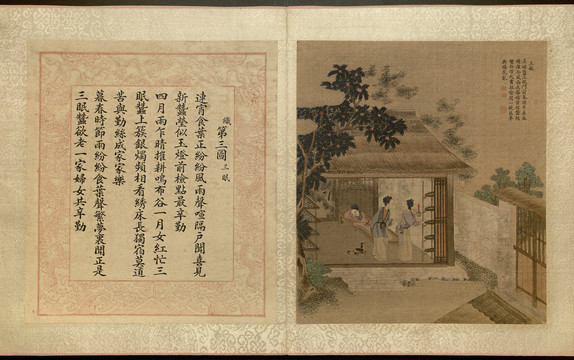 織第三圖 三眠
連宵食葉正紛紛風雨聲喧隔戶聞喜見
新蠶瑩似玉燈前檢點最辛勤
四月雨乍晴摧耕鳴布谷一月女紅忙三
眠蠶上簇銀燭頻相看綉床長獨宿莫道
苦與勤絲成家家樂
暮春時節雨紛紛食葉聲繁夢裏聞正是
三眠蠶欲老一家婦女共辛勤
三眠